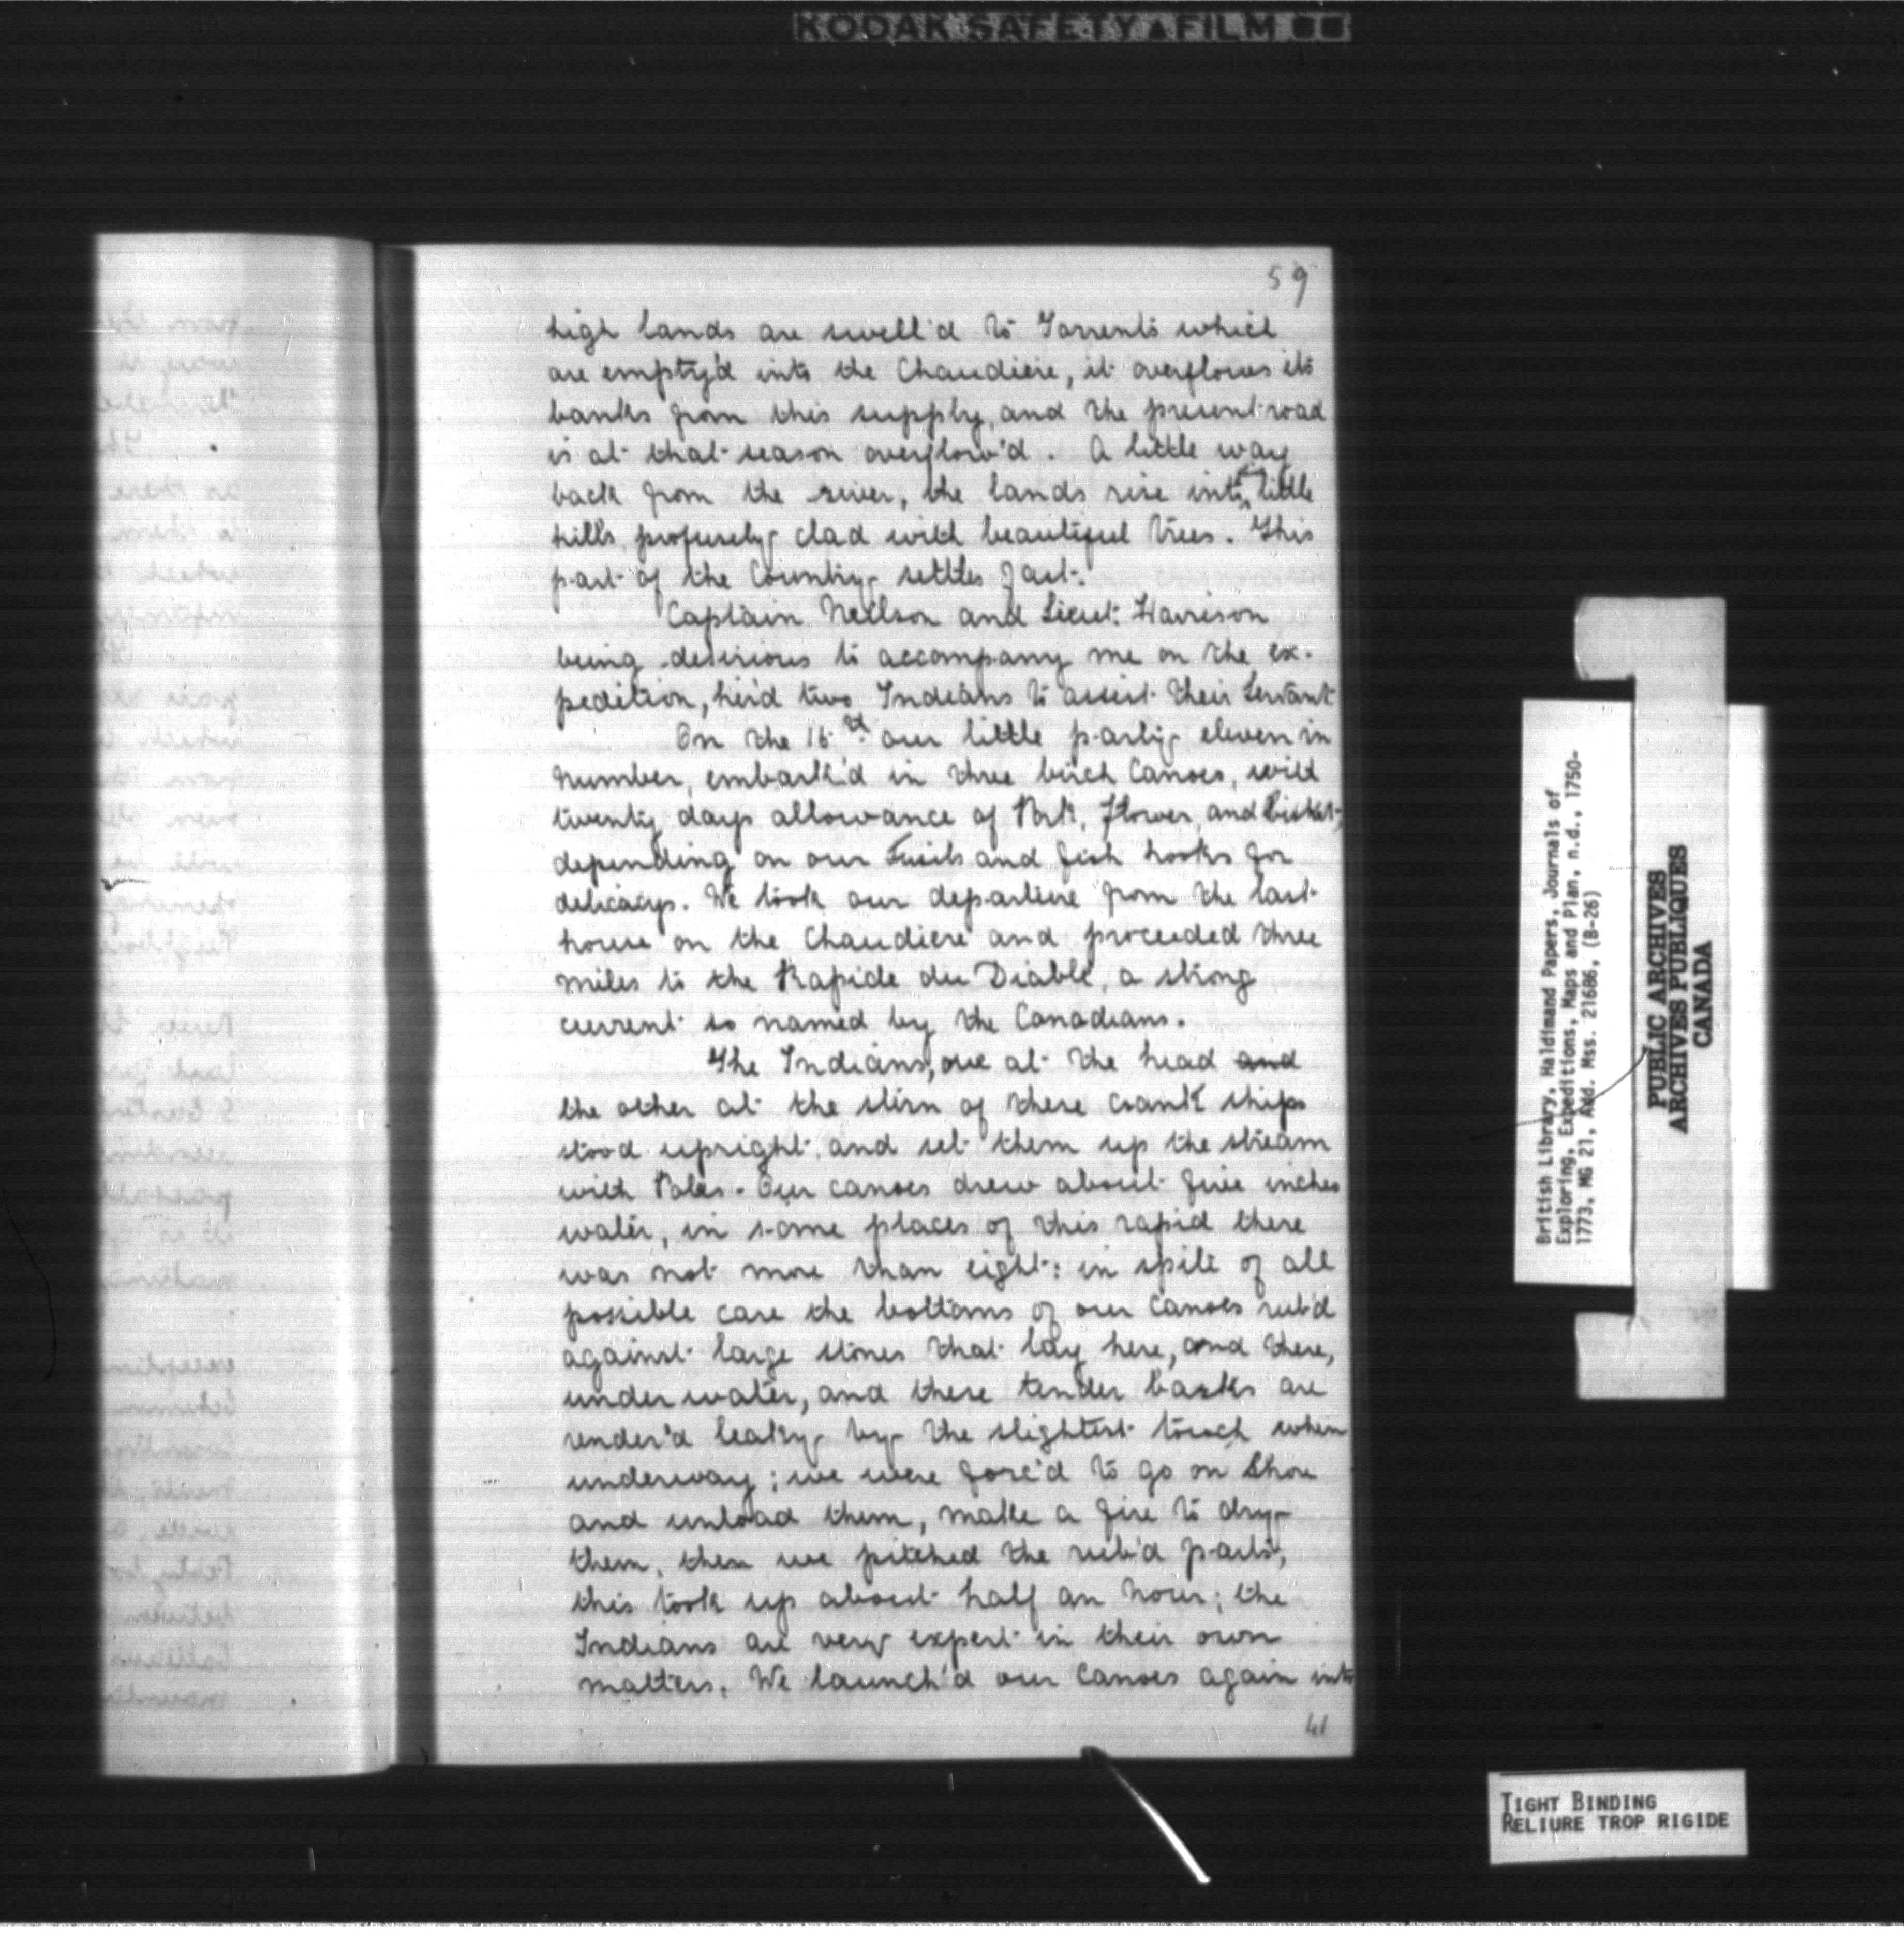 KODAK SAFETY FILM
59
high lands are swell'd to Torrents which
are empty'd into the Chaudiere, it overflows its
banks from this supply, and the present road
is at that season overflow'd. A little way
back from the river, the lands rise into little
hills profusely clad with beautiful Trees. This
part of the Country settles fast.
Captain Neilson and Lieut: Harrison
being desirious to accompany me on the ex-
pedition, hir'd two Indians to assist their Servant
On the 16th our little party eleven in
number, embark'd in three birch Canoes, with
twenty days allowance of Pork, Flower, and bisket,
depending on our Fusils and fish hooks for
delicacys. We took our departure from the last
house on the Chaudiere and proceeded three
miles to the Rapide du Diable, a strong
current so named by the Canadians.
The Indians, one at the head and
the other at the stern of these crank ships
stood upright and set them up the stream
with Poles. Our canoes drew about five inches
water, in some places of this rapid there
was not more than eight: in spite of all
possible care the bottoms of our Canoes rub'd
against large stones that lay here, and there,
under water, and these tender barks are
render'd leaky by the slightest touch when
underway; we were forc'd to go on Shore
and unload them, make a fire to dry
them, then we pitched the rub'd parts,
this took up about half an hour; the
Indians are very expert in their own
matters. We launch'd our Canoes again into
41
British Library, Haldimand Papers, Journals of
Exploring, Expeditions, Maps and Plan, n.d., 1750-
1773, MG 21, Add. Mss. 21686, (B-26)
PUBLIC ARCHIVES
ARCHIVES PUBLIQUES
CANADA
TIGHT BINDING
RELIURE TROP RIGIDE